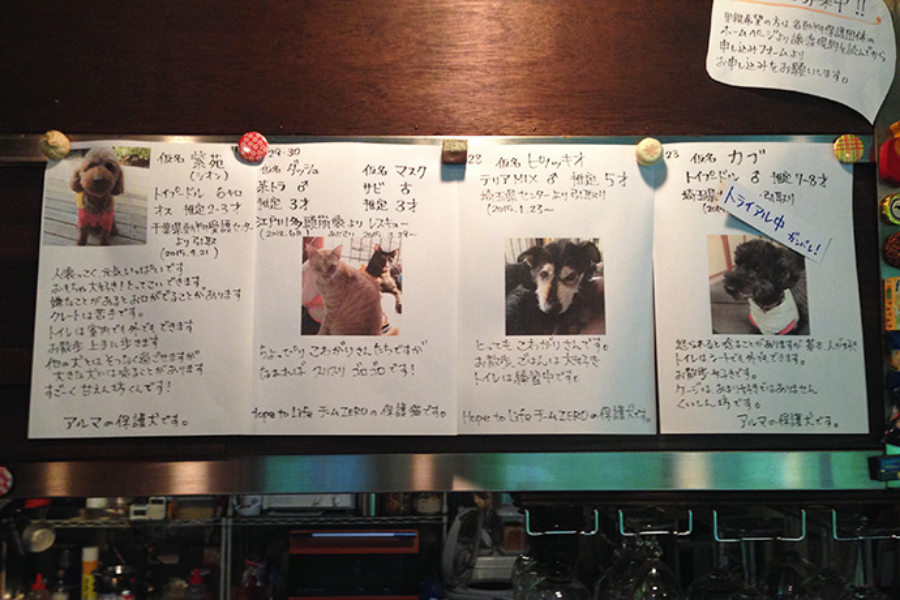 里親希望の方は各動物保護団体の
ホームページより譲渡規約を読んでから
申し込みフォームより
お申し込みをお願いします。
仮名 紫苑
(シオン)
トイプードル
オス 推定2-3才
千葉県動物愛護センター
より引取
(2015.4.21)
人懐っこく、元気いっぱいです
おもちゃ大好き!とってこいできます。
嫌なことがあるとお口がでることがあります
クレートは苦手です。
トイレは室内でも外でもできます
お散歩上手に歩きます
他の犬とはそつなく過ごせますが
大きな犬には唸ることがあります
すごーく甘えん坊くんです!
アルマの保護犬です。
29-30
仮名 ダッシュ
茶トラ ♂
推定 3才
マスク
サビ
推定 3才
江戸川多頭崩壊より レスキュー
ちょっぴり こわがりさんたちですが
なれれば スリスリ ゴロゴロです!
Hope to Life チームZEROの保護猫です。
28
仮名 トリッキオ
テリアMIX ♂ 推定 5才
埼玉県センターより引取り
(2015.1.23~)
とっても こわがりさんです。
お散歩、ごはんは大好き
トイレは練習中です。
Hope to Life チームZEROの保護犬です。
23
仮名 カブ
トイプードル ♂ 推定 7-8才
埼玉県
引取り
トライアル中
ガンバレ!
トイレはシートでも外でもできます。
お散歩好きです。
ケージは、あまり好きではありません
くいしん坊です。
アルマの保護犬です。